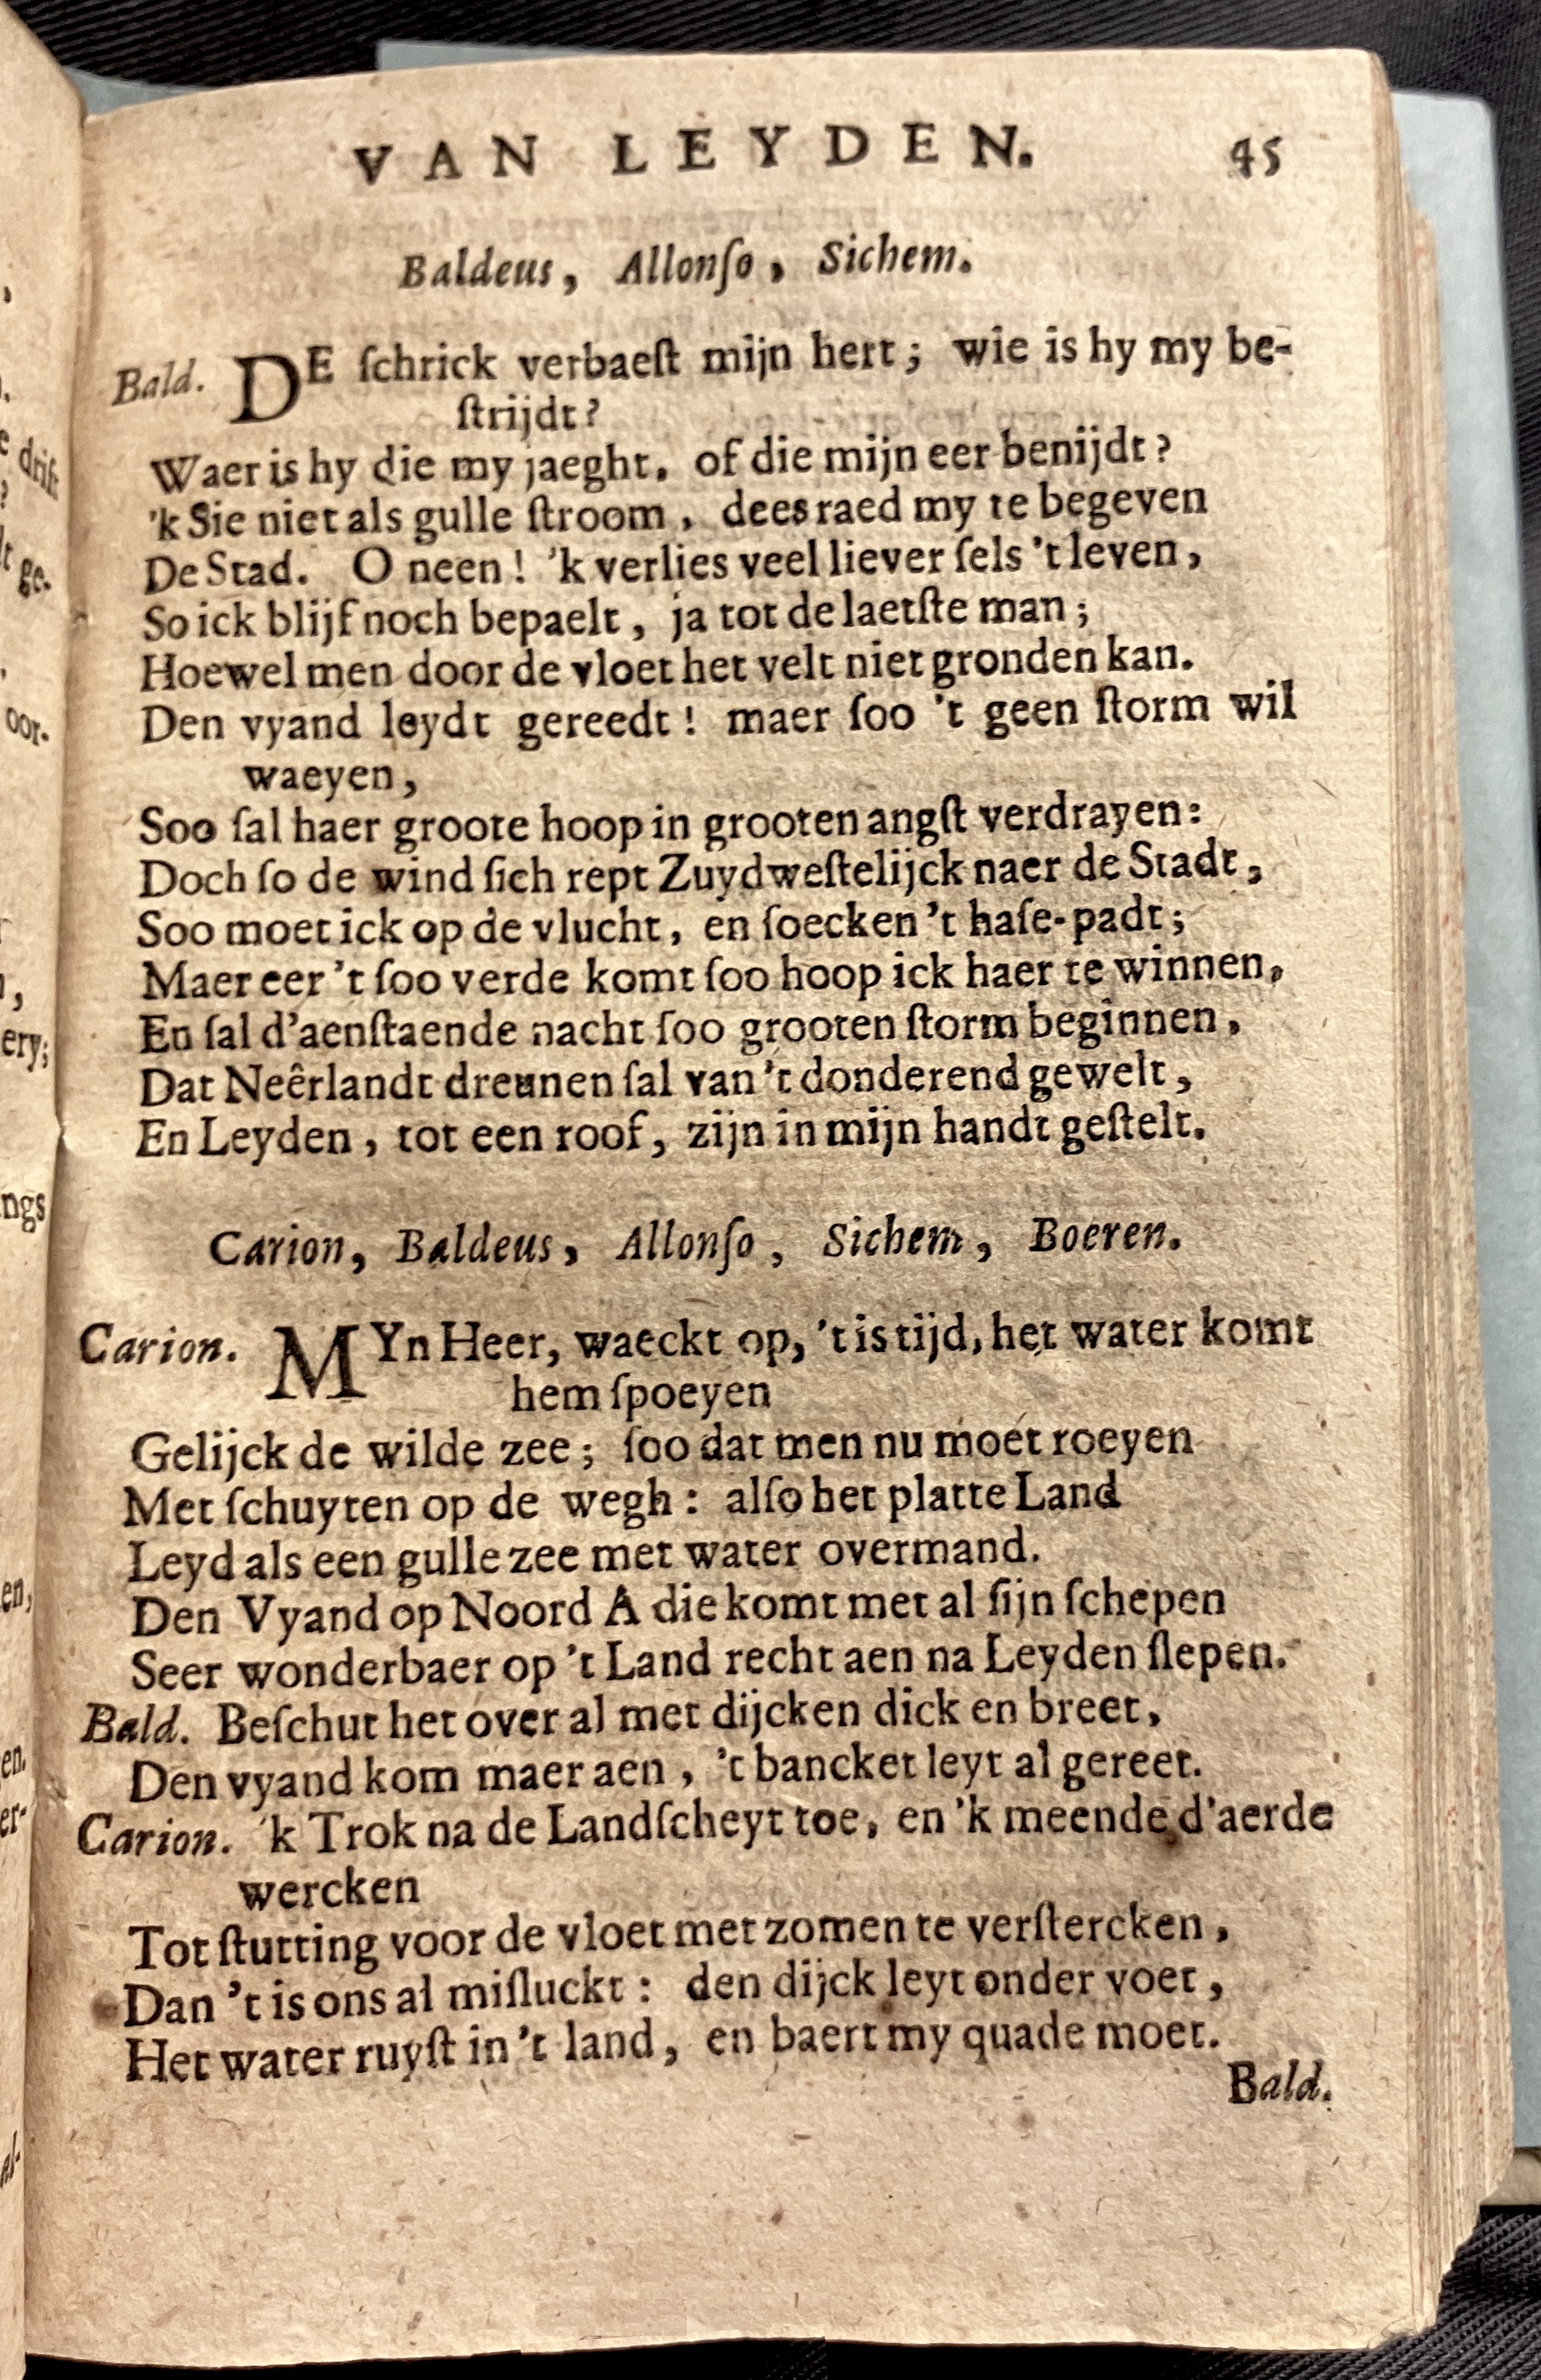 VAN LEYDEN. 45
Baldeus, Allonſo, Sichem.
Bald. DE ſchrick verbaeſt mijn hert; wie is hy my be-
ſtrijdt?
Waer is hy die my jaeght, of die mijn eer benijdt?
'k Sie niet als gulle ſtroom, dees raed my te begeven
De Stad. O neen! 'k verlies veel liever ſels 't leven,
So ick blijf noch bepaelt, ja tot de laetſte man;
Hoewel men door de vloet het velt niet gronden kan.
Den vyand leydt gereedt! maer ſoo 't geen ſtorm wil
waeyen,
Soo ſal haer groote hoop in grooten angſt verdrayen:
Doch ſo de wind ſich rept Zuydweſtelijck naer de Stadt,
Soo moet ick op de vlucht, en ſoecken 't haſe-padt;
Maer eer 't ſoo verde komt ſoo hoop ick haer te winnen,
En ſal d'aenſtaende nacht ſoo grooten ſtorm beginnen,
Dat Neêrlandt dreunen ſal van 't donderend gewelt,
En Leyden, tot een roof, zijn in mijn handt geſtelt.
Carion, Baldeus, Allonſo, Sichem, Boeren.
Carion. MYn Heer, waeckt op, 't is tijd, het water komt
hem ſpoeyen
Gelijck de wilde zee; ſoo dat men nu moet roeyen
Met ſchuyten op de wegh: alſo het platte Land
Leyd als een gulle zee met water overmand.
Den Vyand op Noord A die komt met al ſijn ſchepen
Seer wonderbaer op 't Land recht aen na Leyden ſlepen.
Bald. Beſchut het over al met dijcken dick en breet,
Den vyand kom maer aen, 't bancket leyt al gereet.
Carion. 'k Trok na de Landſcheyt toe, en 'k meende d'aerde
wercken
Tot ſtutting voor de vloet met zomen te verſtercken,
Dan 't is ons al miſluckt: den dijck leyt onder voet,
Het water ruyſt in 't land, en baert my quade moet.
Bald.